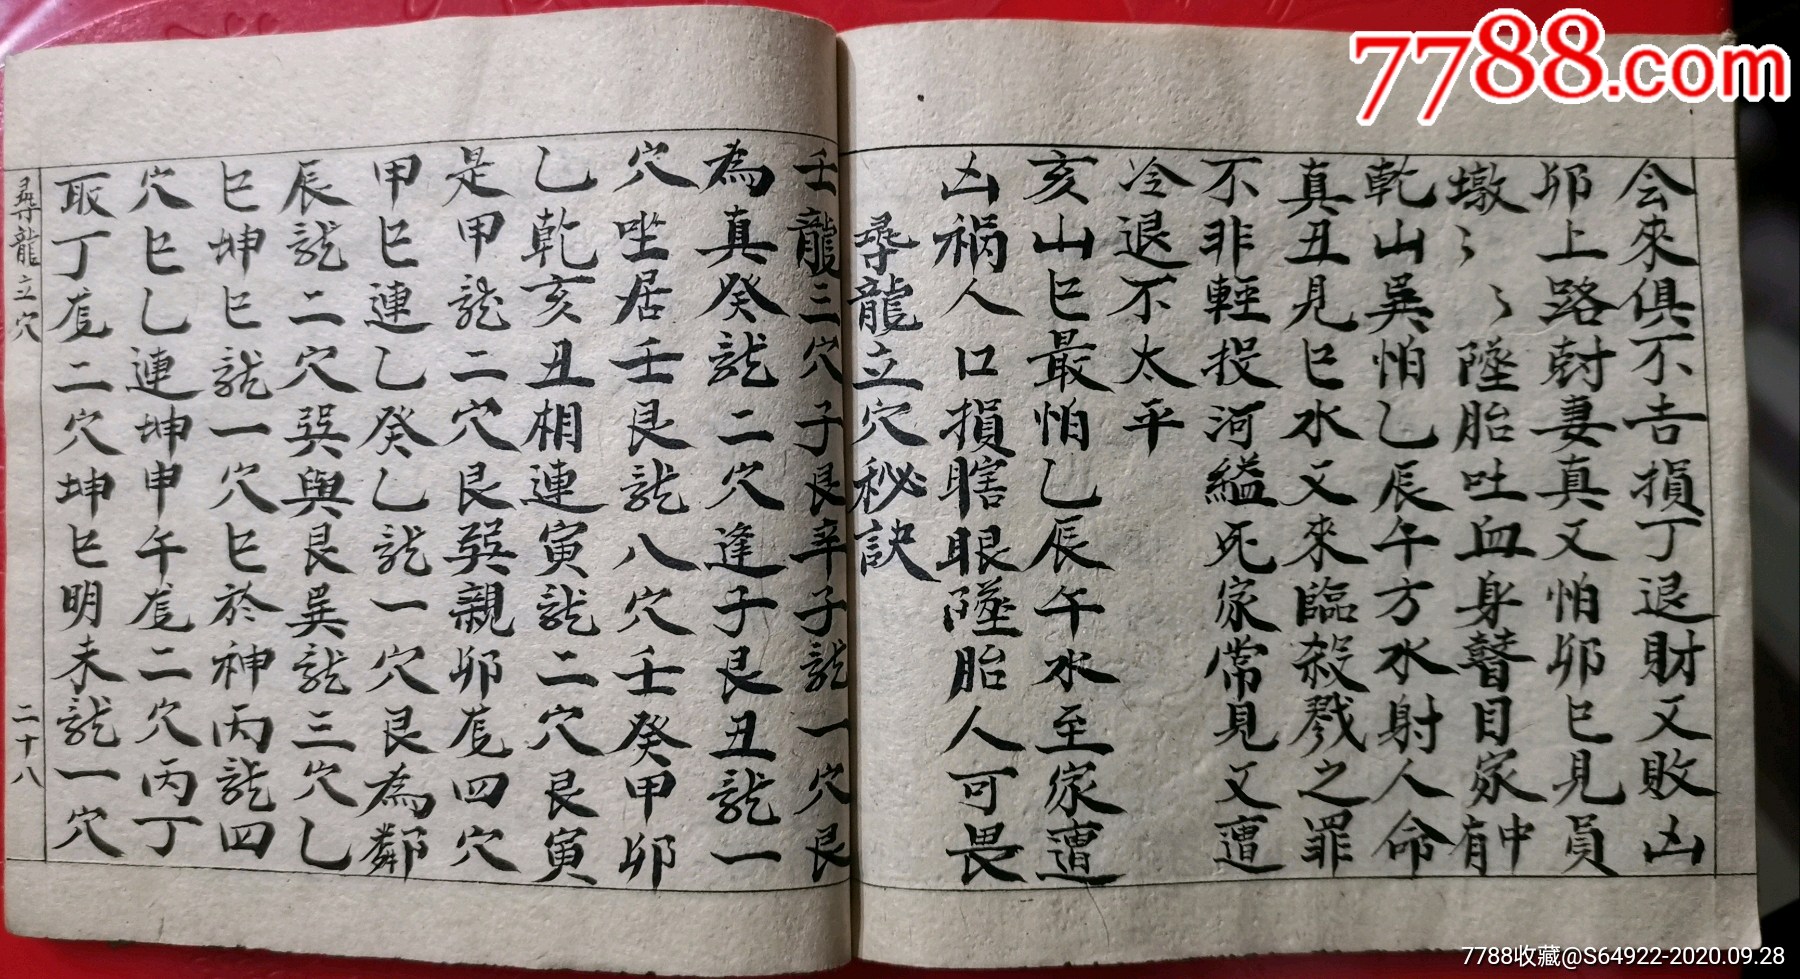 7788.com
会來俱不吉損丁退財又敗凶
卯上路尅妻真又怕卯巳見員
墩〻〻墜胎吐血身瞽目家中有
乾山巽怕乙辰午方水射人命
真丑見巳水又來臨殺戮之罪
不非輕投河縊死家常見又遭
冷退不太平
亥山巳最怕乙辰午水至家遭
凶禍人口損瞎眼墜胎人可畏
尋龍立穴秘訣
壬龍三穴子艮辛子龍一穴艮
為真癸龍二穴逢子艮丑龍一
穴坐居壬艮龍八穴壬癸甲卯
乙乾亥丑相連寅龍二穴艮寅
是甲龍二穴艮巽親卯龍四穴
甲巳連乙癸乙龍一穴艮為鄰
辰龍二穴巽與艮巽龍三穴乙
巳坤巳龍一穴巳於神丙龍四
穴巳乙連坤申午龍二穴丙丁
取丁龍二穴坤巳明未龍一穴
尋龍立穴
二十八
7788收藏@S64922-2020.09.28